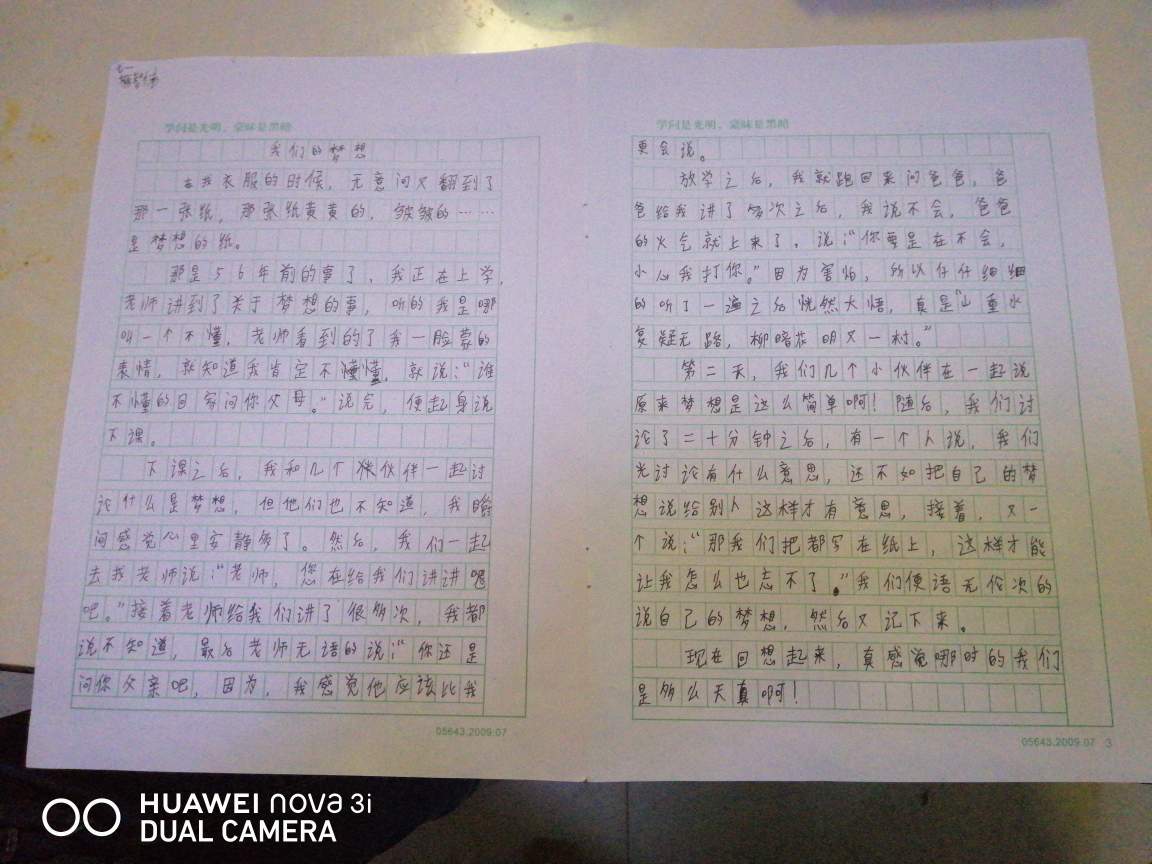 七一
学问是光明，蒙昧是黑暗
我们的梦想
去找衣服的时候，无意间又翻到了
那一张纸，那张纸黄黄的，皱皱的……
是梦想的纸。
那是56年前的事了，我正在上学，
老师讲到了关于梦想的事，听的我是哪
叫一个不懂，老师看到的了我一脸蒙的
表情，就知道我肯定不懂，就说：“谁
不懂的回家问你父母。”说完，便起身说
下课。
下课之后，我和几个伙伴一起讨
论什么是梦想，但他们也不知道，我瞬
间感觉心里安静多了。然后，我们一起
去找老师说：“老师，您在给我们讲讲
吧。”接着老师给我们讲了很多次，我都
说不知道，最后老师无语的说：“你还是
问你父亲吧，因为，我感觉他应该比我
05643.2009.07
学问是光明，蒙昧是黑暗
更会说。
放学之后，我就跑回来问爸爸，爸
爸给我讲了多次之后，我说不会，爸爸
的火气就上来了，说：“你要是在不会，
小心我打你。”因为害怕，所以仔仔细细
的听了一遍之后恍然大悟，真是“山重水
复疑无路，柳暗花明又一村。”
第二天，我们几个小伙伴在一起说
原来梦想是这么简单啊！随后，我们讨
论了二十分钟之后，有一个人说，我们
光讨论有什么意思，还不如把自己的梦
想说给别人这样才有意思，接着，又一
个说：“那我们把都写在纸上，这样才能
让我怎么也忘不了。”我们便语无伦次的
说自己的梦想，然后又记下来。
现在回想起来，真感觉哪时的我们
是多么天真啊！
05643.2009.07 3
HUAWEI nova 3i
DUAL CAMERA